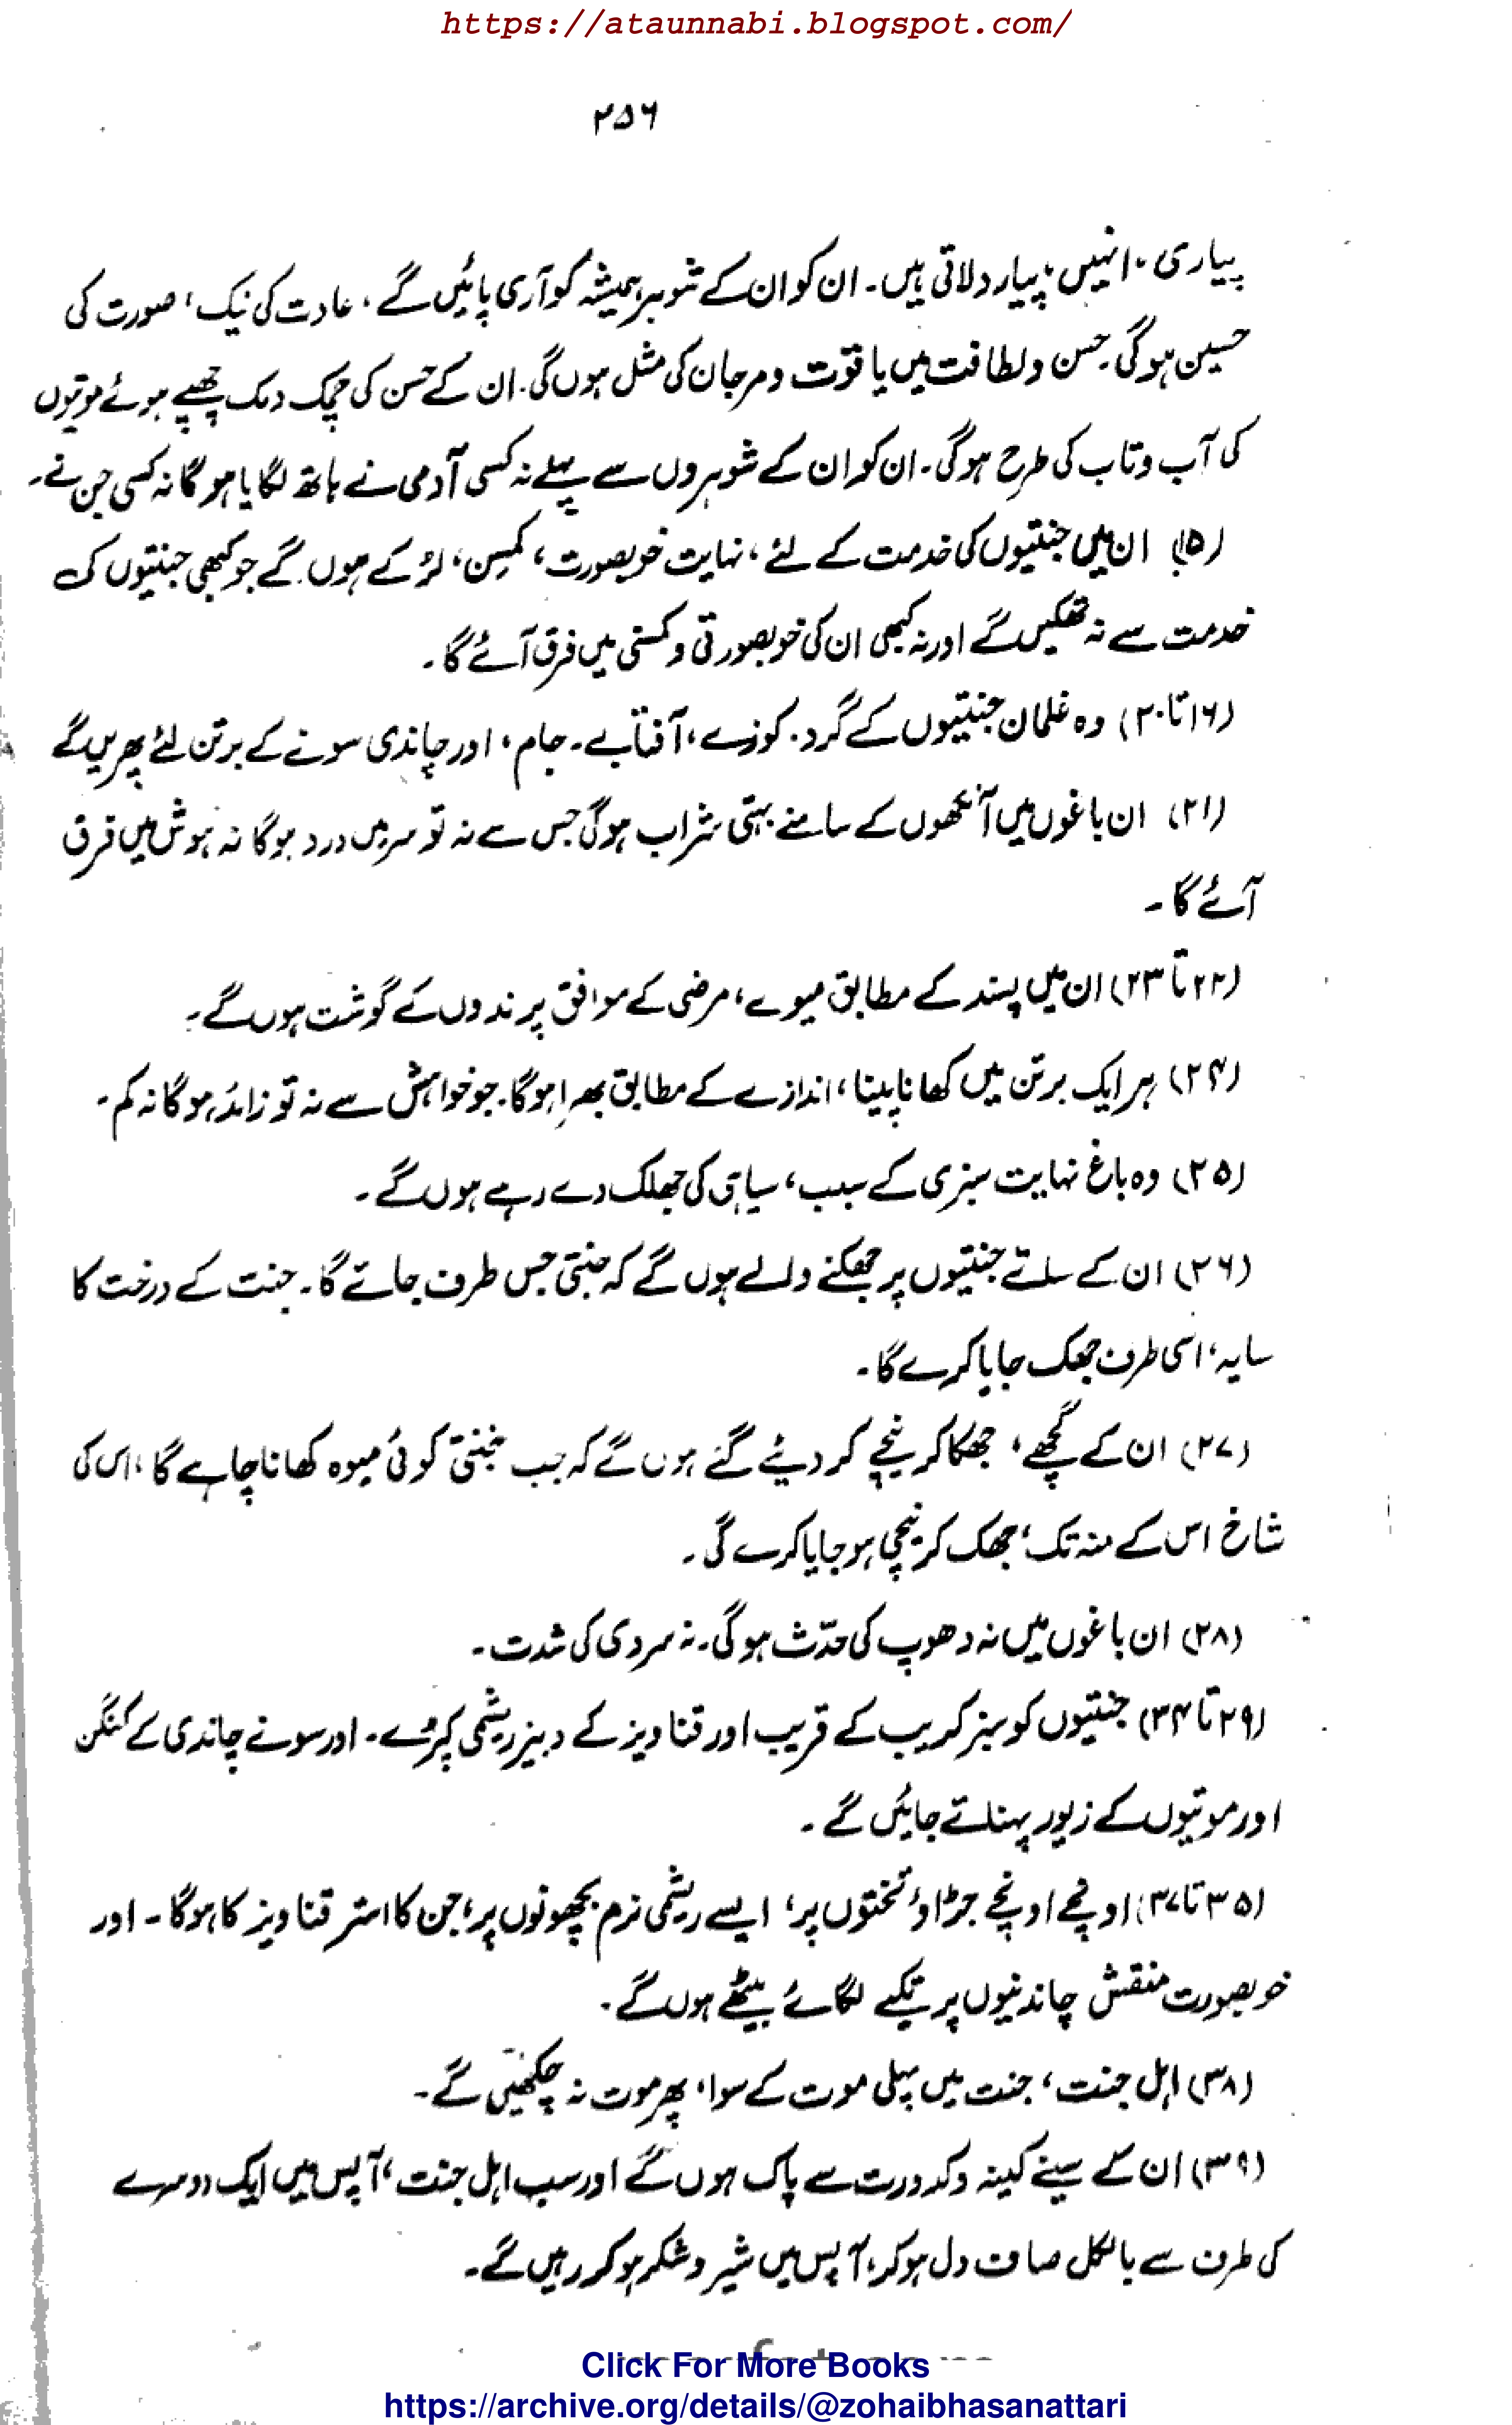 https://ataunnabi.blogspot.com/
۲۵۶
پیاری، انہیں پیار دلاتی ہیں۔ ان کو ان کے شوہر ہمیشہ کوآری پائیں گے، عادت کی نیک، صورت کی
حسین ہوگی۔ حسن و لطافت میں یاقوت و مرجان کی مثل ہوں گی۔ ان کے حسن کی چمک دمک چھپے ہوئے موتیوں
کی آب و تاب کی طرح ہوگی۔ ان کو ان کے شوہروں سے پہلے نہ کسی آدمی نے ہاتھ لگایا ہوگا نہ کسی جن نے۔
(۱۵) ان میں جنتیوں کی خدمت کے لئے، نہایت خوبصورت، کمسن، لڑکے ہوں گے جو کبھی جنتیوں کی
خدمت سے نہ تھکیں گے اور نہ کبھی ان کی خوبصورتی و کمسنی میں فرق آئے گا۔
(۱۶ تا ۲۰) وہ غلمان جنتیوں کے گرد۔ کوزے، آفتابے۔ جام، اور چاندی سونے کے برتن لئے پھریں گے
(۲۱) ان باغوں میں آنکھوں کے سامنے بہتی شراب ہوگی جس سے نہ تو سر میں درد ہوگا نہ ہوش میں فرق
آئے گا۔
(۲۲ تا ۲۳) ان میں پسند کے مطابق میوے، مرضی کے موافق پرندوں کے گوشت ہوں گے۔
(۲۴) ہر ایک برتن میں کھانا پینا، اندازے کے مطابق بھرا ہوگا۔ جو خواہش سے نہ تو زائد ہوگا نہ کم۔
(۲۵) وہ باغ نہایت سبزی کے سبب، سیاہی کی جھلک دے رہے ہوں گے۔
(۲۶) ان کے سائے جنتیوں پر جھکنے والے ہوں گے کہ جنتی جس طرف جائے گا۔ جنت کے درخت کا
سایہ، اسی طرف جھک جایا کرے گا۔
(۲۷) ان کے گچھے، جھکا کر نیچے کر دیئے گئے ہوں گے کہ جب جنتی کوئی میوہ کھانا چاہے گا، اس کی
شاخ اس کے منہ تک، جھک کر نیچی ہو جایا کرے گی۔
(۲۸) ان باغوں میں نہ دھوپ کی حدّث ہوگی۔ نہ سردی کی شدت۔
(۲۹ تا ۳۴) جنتیوں کو سبز کریب کے قریب اور قناویز کے دبیز ریشمی کپڑے۔ اور سونے چاندی کے کنگن
اور موتیوں کے زیور پہنائے جائیں گے۔
(۳۵ تا ۳۷) اونچے اونچے جڑاؤ تختوں پر، ایسے ریشمی نرم بچھونوں پر، جن کا استر قناویز کا ہوگا۔ اور
خوبصورت منقش چاندنیوں پر تکیے لگائے بیٹھے ہوں گے۔
(۳۸) اہل جنت، جنت میں پہلی موت کے سوا، پھر موت نہ چکھیں گے۔
(۳۹) ان کے سینے کینہ و کدورت سے پاک ہوں گے اور سب اہل جنت، آپس میں ایک دوسرے
کی طرف سے بالکل صاف دل ہو کر، آپس میں شیر و شکر ہو کر رہیں گے۔
Click For More Books
https://archive.org/details/@zohaibhasanattari